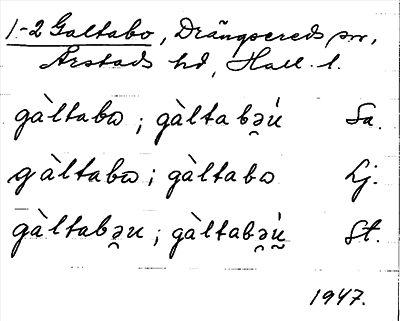 1-2 Galtabo, Drängsereds sn,
Årstads hd, Hall. l.
gàltabɷ; gàltabə̯ú Sa.
gàltabɷ; gàltabɷ Lj.
gàltabə̯u; gàltabə̯ú̯ St.
1947.